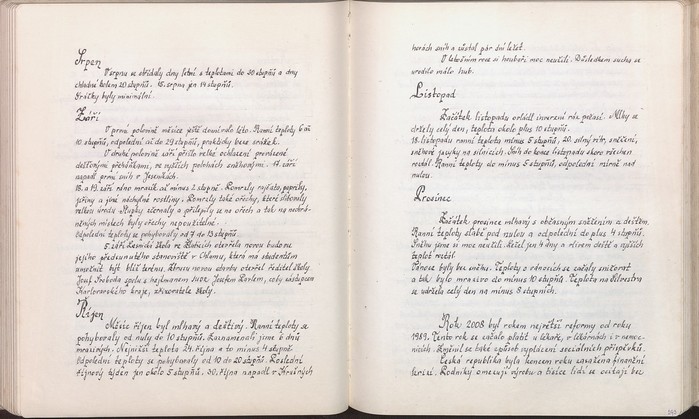 Srpen
V srpnu se střídaly dny letní s teplotami do 30 stupňů a dny
chladné kolem 20 stupňů. 15. srpna jen 14 stupňů.
Srážky byly minimální.
Září
V první polovině měsíce ještě doznívalo léto. Ranní teploty 6 až
10 stupňů, odpolední až do 29 stupňů, prakticky beze srážek.
V druhé polovině září přišlo velké ochlazení provázené
dešťovými přeháňkami, ve vyšších polohách sněhovými. 17. září
napadl první sníh v Jeseníkách.
18. a 19. září ráno mrazík až minus 2 stupně. Pomrzly rajčata, papriky,
jiřiny a jiné náchylné rostliny. Pomrzly také ořechy, které slibovaly
velkou úrodu. Slupky zčernaly a přilepily se na ořech a tak na
místech byly ořechy nepoužitelné.
Odpolední teploty se pohybovaly od 7 do 13 stupňů.
5. září Lesnická škola ve Žluticích otevřela novou budovu
jejího předsunutého stanoviště v Chlumu, která má studentům
umožnit být blíž terénu. Novou stavbu otevřel ředitel školy
Josef Svoboda spolu s hejtmanem JUDr. Josefem Pavlem, coby zástupcem
Karlovarského kraje, zřizovatele školy.
Říjen
Měsíc říjen byl mlhavý a deštivý. Ranní teploty se
pohybovaly od nuly do 10 stupňů. Zaznamenali jsme 6 dnů
mrazivých. Nejnižší teplota 24. října a to minus 4 stupně.
Odpolední teploty se pohybovaly od 10 do 20 stupňů. Poslední
říjnový týden jen okolo 5 stupňů. 30. října napadl v Krušných
horách sníh a zůstal pár dní ležet.
V letošním roce si houbaři moc neužili. Důsledkem sucha se
urodilo málo hub.
Listopad
Začátek listopadu ovládl inverzní ráz počasí. Mlhy se
držely celý den, teplota okolo plus 10 stupňů.
18. listopadu ranní teplota minus 5 stupňů, 20. silný vítr, sněžení,
sněhové jazyky na silnicích. Sníh do konce listopadu skoro všechen
roztál. Ranní teploty do minus 5 stupňů, odpolední mírně nad
nulou.
Prosinec
Začátek prosince mlhavý s občasným sněžením a deštěm.
Ranní teploty slabě pod nulou a odpolední do plus 4 stupňů.
Sněhu jsme si moc neužili. Ležel jen 4 dny a vlivem deště a vyšších
teplot roztál.
Vánoce byly bez sněhu. Teploty o vánocích se začaly snižovat
a tak bylo mrazivo do minus 10 stupňů. Teplota na Silvestra
se udržela celý den na minus 8 stupních.
Rok 2008 byl rokem největší reformy od roku
1989. Tento rok se začalo platit u lékaře, v lékárnách i v nemoc-
nicích. Změnil se také způsob vyplácení sociálních příspěvků.
Česká republika byla koncem roku zasažena finanční
krizí. Podniky omezují výrobu a tisíce lidí se ocitají bez